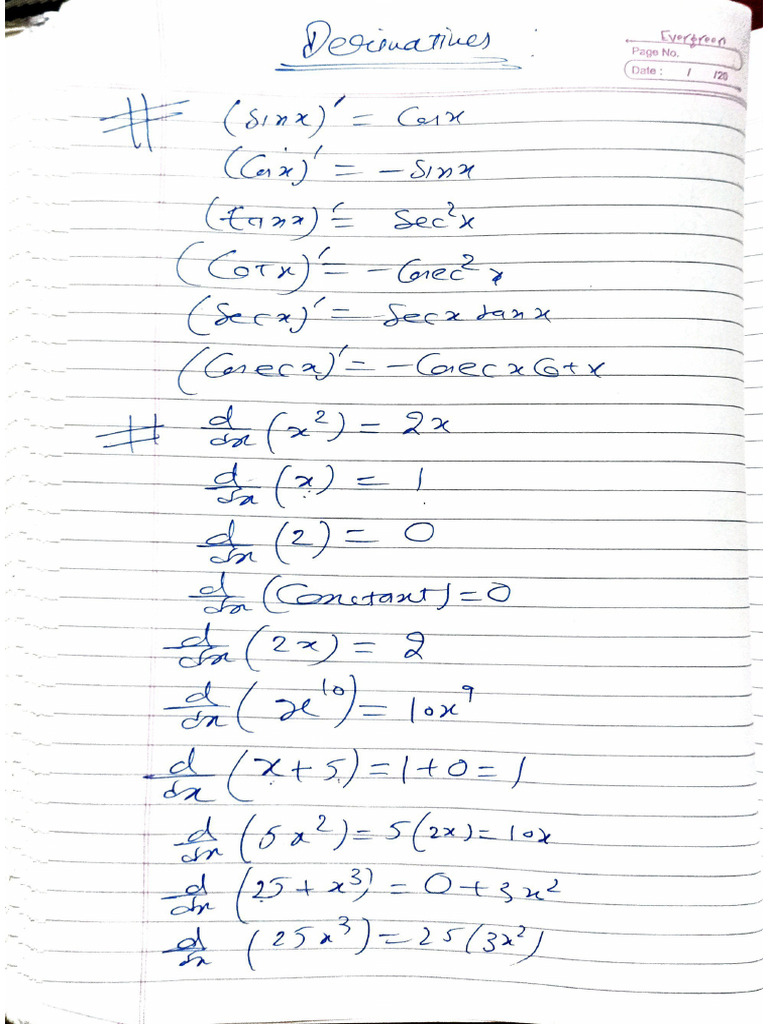 Derivatives :
Evergreen
Page No.
Date : / /20
# (Sinx)' = Cosx
(Cosx)' = -Sinx
(tanx)' = Sec²x
(Cotx)' = -Cosec²x
(Secx)' = Secx tanx
(Cosecx)' = -Cosecx Cotx
# d/dx (x²) = 2x
d/dx (x) = 1
d/dx (2) = 0
d/dx (Constant) = 0
d/dx (2x) = 2
d/dx (x¹⁰) = 10x⁹
d/dx (x+5) = 1+0 = 1
d/dx (5x²) = 5(2x) = 10x
d/dx (25+x³) = 0+3x²
d/dx (25x³) = 25(3x²)